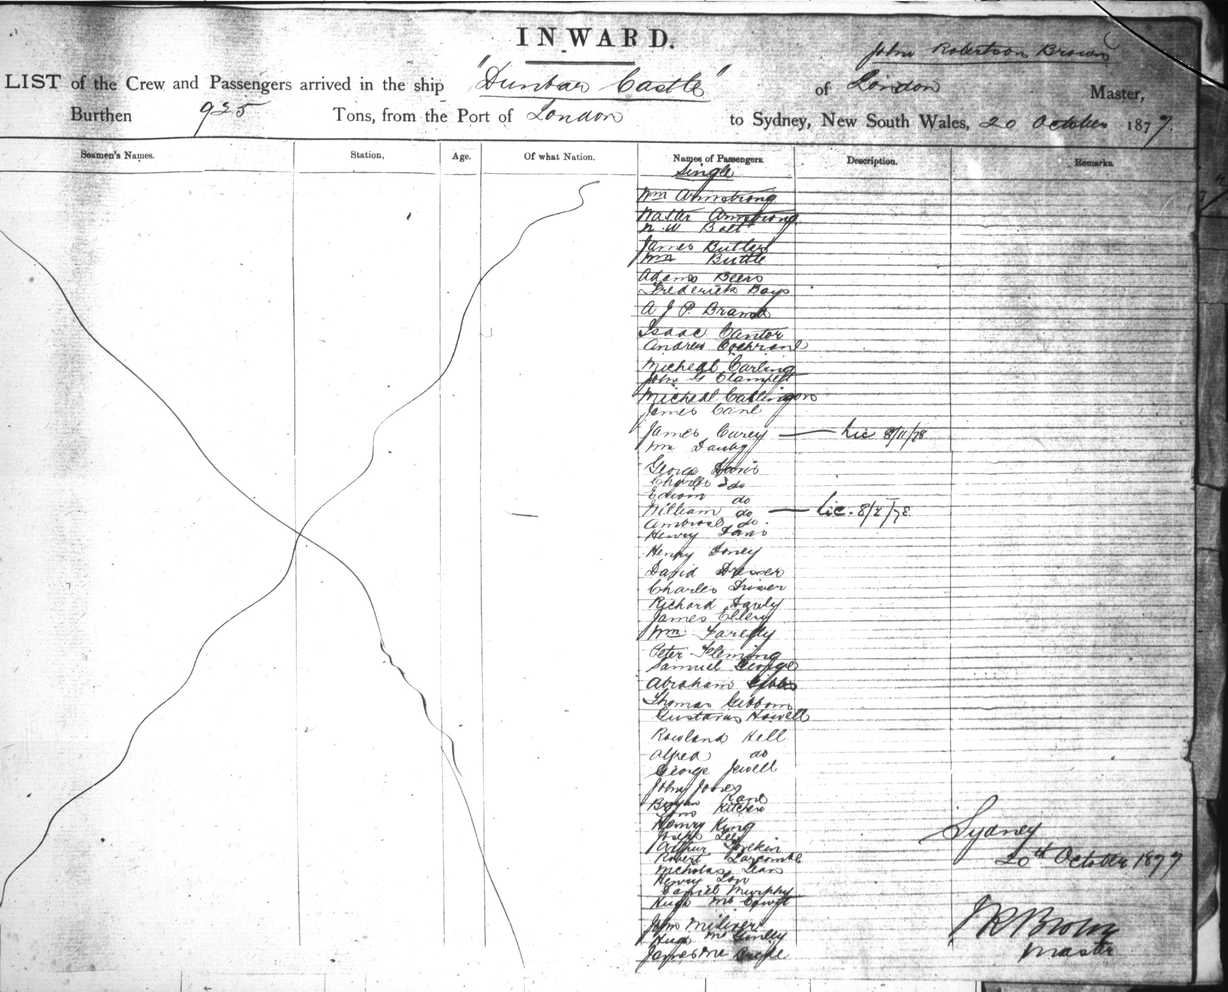 INWARD.
John Robertson Brown
LIST of the Crew and Passengers arrived in the ship "Dunbar Castle" of London Master,
Burthen 925 Tons, from the Port of London to Sydney, New South Wales, 20 October 1877.
Seamen's Names. Station, Age. Of what Nation. Names of Passengers Description. Remarks
Single
Wm Armstrong
Walter Armstrong
James Butler
Wm Buttle
Adams Beers
Frederick Bays
A J P Brand
Isaac Cantor
Andrew Cochrane
Micheal Carling
John G Clampett
Micheal
James Cane
James Curey Lic 8/11/78
Wm Danby
George Davis
Charles do
Edwin do
William do Lic. 8/8/78
Ambrose do.
Henry Davis
Henry Doney
David Driver
Charles Driver
Richard
James Ellery
Wm Farelly
Peter Fleming
Samuel George
Abraham Gibbs
Thomas Gibbons
Gustavus Howell
Rowland Hill
Alfred do
George Jewell
John Jones
Kane
Kitchen
Henry King
Joseph Lee
Arthur
Robert Larcombe
Nicholas
Henry
Daniel Murphy
Hugh Mc
John
Hugh Mc Ginley
James Mc
Sydney
20th October 1877
J R Brown
Master